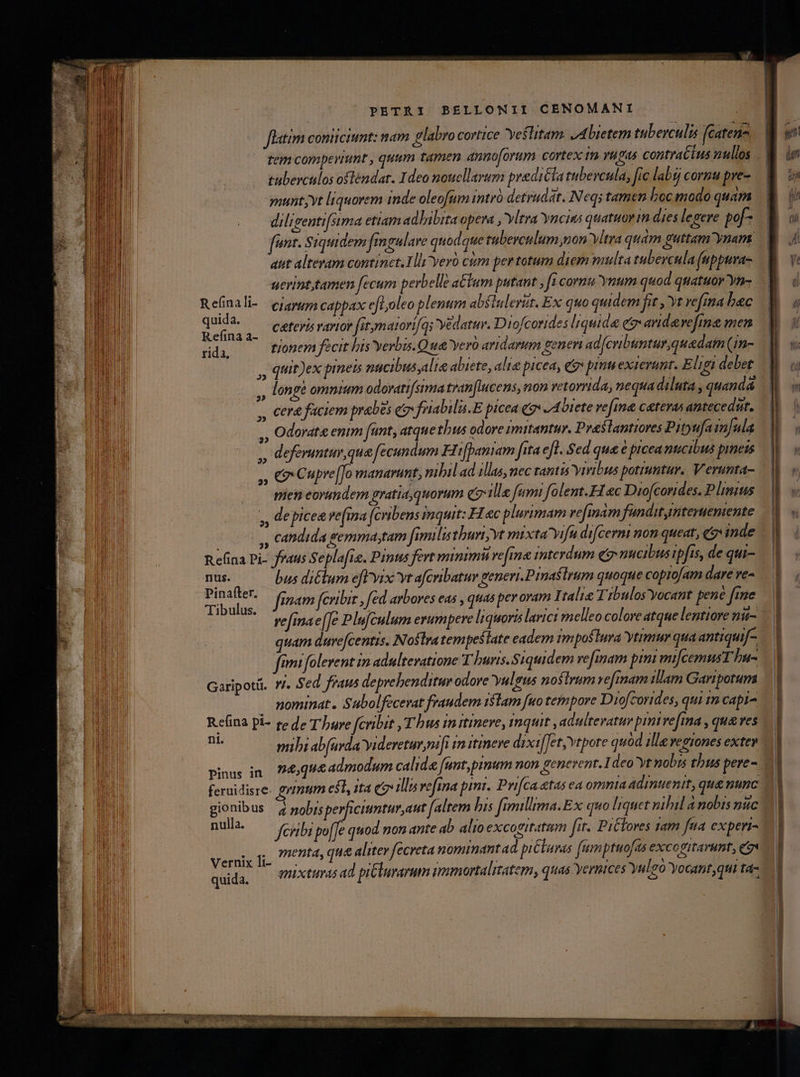 PETRI BELLONII CENOMANI
statim coniiciunt: nam glabro cortice vestitam Abietem tuberculis scaten-
tem comperiunt, quum tamen annosorum cortex in rugas contractus nullos
tuberculos ostendat. Ideo nouellarum prædicta tubercula, sic labijs cornu pre-
munt, vt liquorem inde oleosum intrò detrudāt. Neqs tamen hoc modo quàm
diligentissima etiam adhibita opera, vltra vncias quatuor in dies legere pos-
sunt. Siquidem singulare quodque tuberculum, non vltra quàm guttam vnam
aut alteram continet. Illi verò cùm per totum diem multa tubercula suppura-
uerint, tamen secum perbellè actum putant, si cornu vnum quod quatuor vn-
Resina li- ciarum cappax est, oleo plenum abstulerūt. Ex quo quidem fit, vt resina hæc
quida. cæteris varior sit, maioriśqs vēdatur. Dioscorides liquidæ & aridæ resinæ men
Resina a-
rida, tionem fecit his verbis. Quæ verò aridarum generi adscribuntur, quædam (in-
,, quit) ex pineis nucibus, aliæ abiete, aliæ picea, & pinu exierunt. Eligi debet
,, longè omnium odoratissima translucens, non retorrida, nequa diluta, quandā
,, ceræ faciem præbēs & friabilis. E picea & Abiete resinæ cæteras antecedūt.
,, Odoratæ enim sunt, atque thus odore imitantur. Præstantiores Pityusa insula
,, deferuntur, quæ secundum Hispaniam sita est. Sed quæ è picea nucibus pineis
,, & Cupresso manarunt, nihil ad illas, nec tantis viribus potiuntur. Verunta-
men eorundem gratia, quorum & illæ sumi solent. Hæc Dioscorides. Plinius
,, de piceæ resina scribens inquit: Hæc plurimam resinam fundit, interueniente
,, candida gemma, tam similis thuri, vt mixta visu discerni non queat, & inde
Resina Pi- fraus Seplasiæ. Pinus fert minimū resinæ interdum & nucibus ipsis, de qui-
nus. bus dictum est vix vt ascribatur generi. Pinastrum quoque copiosam dare re-
Pinaster. sinam scribit, sed arbores eas, quas per oram Italiæ Tibulos vocant penè sine
Tibulus. resina esse Plusculum erumpere liquoris larici melleo colore atque lentiore nū-
quam durescentis. Nostra tempestate eadem impostura vtimur qua antiquis-
simi solerent in adulteratione Thuris. Siquidem resinam pini miscemus Thu-
Garipotū. ri. Sed fraus deprehenditur odore vulgus nostrum resinam illam Garipotum
nominat. Subolfecerat fraudem istam suo tempore Dioscorides, qui in capi-
Resina pi- te de Thure scribit, Thus in itinere, inquit, adulteratur pini resina, quæ res
ni. mihi absurda videretur, nisi in itinere dixisset, vtpote quòd illæ regiones exter
Pinus in næ, quæ admodum calidæ sunt, pinum non generent. Ideo vt nobis thus pere-
feruidisre grinum est, ita & illis resina pini. Prisca ætas ea omnia adinuenit, quæ nunc
gionibus à nobis perficiuntur, aut saltem his simillima. Ex quo liquet nihil à nobis nūc
nulla. scribi posse quod non ante ab alio excogitatum sit. Pictores iam sua experi-
menta, quæ aliter secreta nominant ad picturas sumptuosas excogitarunt, &
Vernix li-
quida. mixturas ad picturarum immortalitatem, quas vernices vulgò vocant, qui ta-